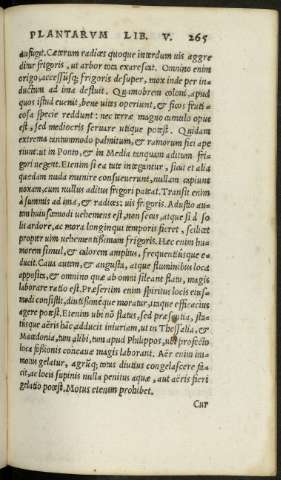 PLANTARVM LIB. V. 265
aufugit. Cæterum radices quoque interdum uis aggre
ditur frigoris, ut arbor tota exarescat. Omnino enim
origo, accessusq; frigoris desuper, mox inde per in
ductum ad ima destuit. Quamobrem coloni, apud
quos istud euenit, bene uites operiunt, & ficos fruti
cosa specie reddunt: nec terræ magno cumulo opus
est, sed mediocris seruare utique potest. Quidam
extrema tantummodo palmitum, & ramorum fici ape
riunt. ut in Ponto, & in Media tanquam aditum frigo
ri negent. Etenim si ea tute integantur, sicut et alia
quædam nuda munire consueuerunt, nullam capiunt
noxam, cum nullus aditus frigori pateat. Transit enim
à summis ad ima, & radices: uis frigoris. Adustio au
tem huiusmodi uehemens est, non secus, atque si à so
lis ardore, ac mora longinqui temporis fieret, scilicet
propter uim uehementissimam frigoris. Hæc enim hu
morem simul, & calorem amplius, frequentiusque e
ducit. Caua autem, & angusta, atque fluminibus loca
apposita, & omnino quæ ab omni sileant flatu, magis
laborare ratio est. Præsertim enim spiritus locis eius
modi consistit, diutissiméque moratur, unque efficacius
agere potest. Etenim ubi nõ status, sed præsentia, sta
tisque aëris hâc adducit iniuriam, ut in Thessalia, &
Macedonia, tum alibi, tum apud Philippos, ubi profecto
loca sessionis concauæ magis laborant. Aër enim im
motus gelatur, agrúq; imus diutius congelascere fa
cit, ac locis supinis nulla penitus aquæ, aut aëris fieri
gelatio potest. Motus etenim prohibet.
Cur